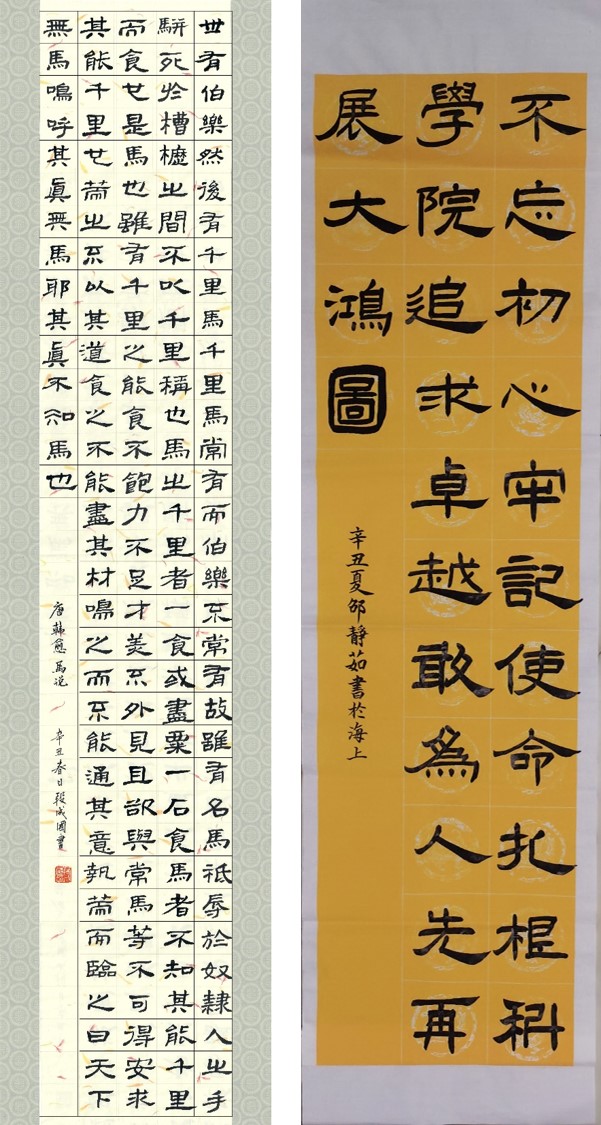 世有伯樂然後有千里馬千里馬常有而伯樂不常有故雖有名馬祇辱於奴隸人之手
駢死於槽櫪之間不以千里稱也馬之千里者一食或盡粟一石食馬者不知其能千里
而食也是馬也雖有千里之能食不飽力不足才美不外見且欲與常馬等不可得安求
其能千里也策之不以其道食之不能盡其材鳴之而不能通其意執策而臨之曰天下
無馬嗚呼其眞無馬耶其眞不知馬也
唐韓愈馬说
辛丑春日段成國書
不忘初心牢記使命扎根科
學院追求卓越敢為人先再
展大鴻圖
辛丑夏邵靜茹書於海上